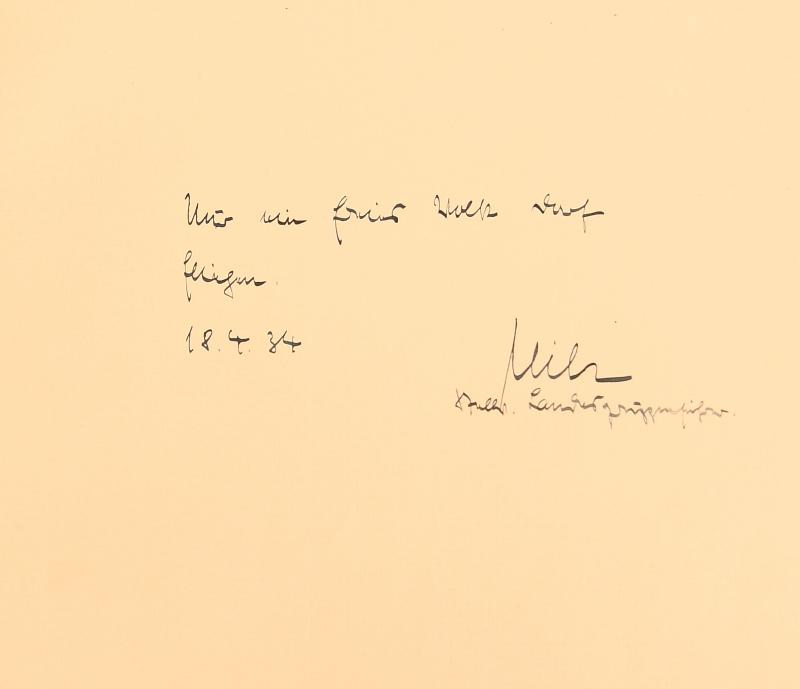 Nur ein freies Volk darf
fliegen.
18.4.34
Stellv. Landesgruppenführer.